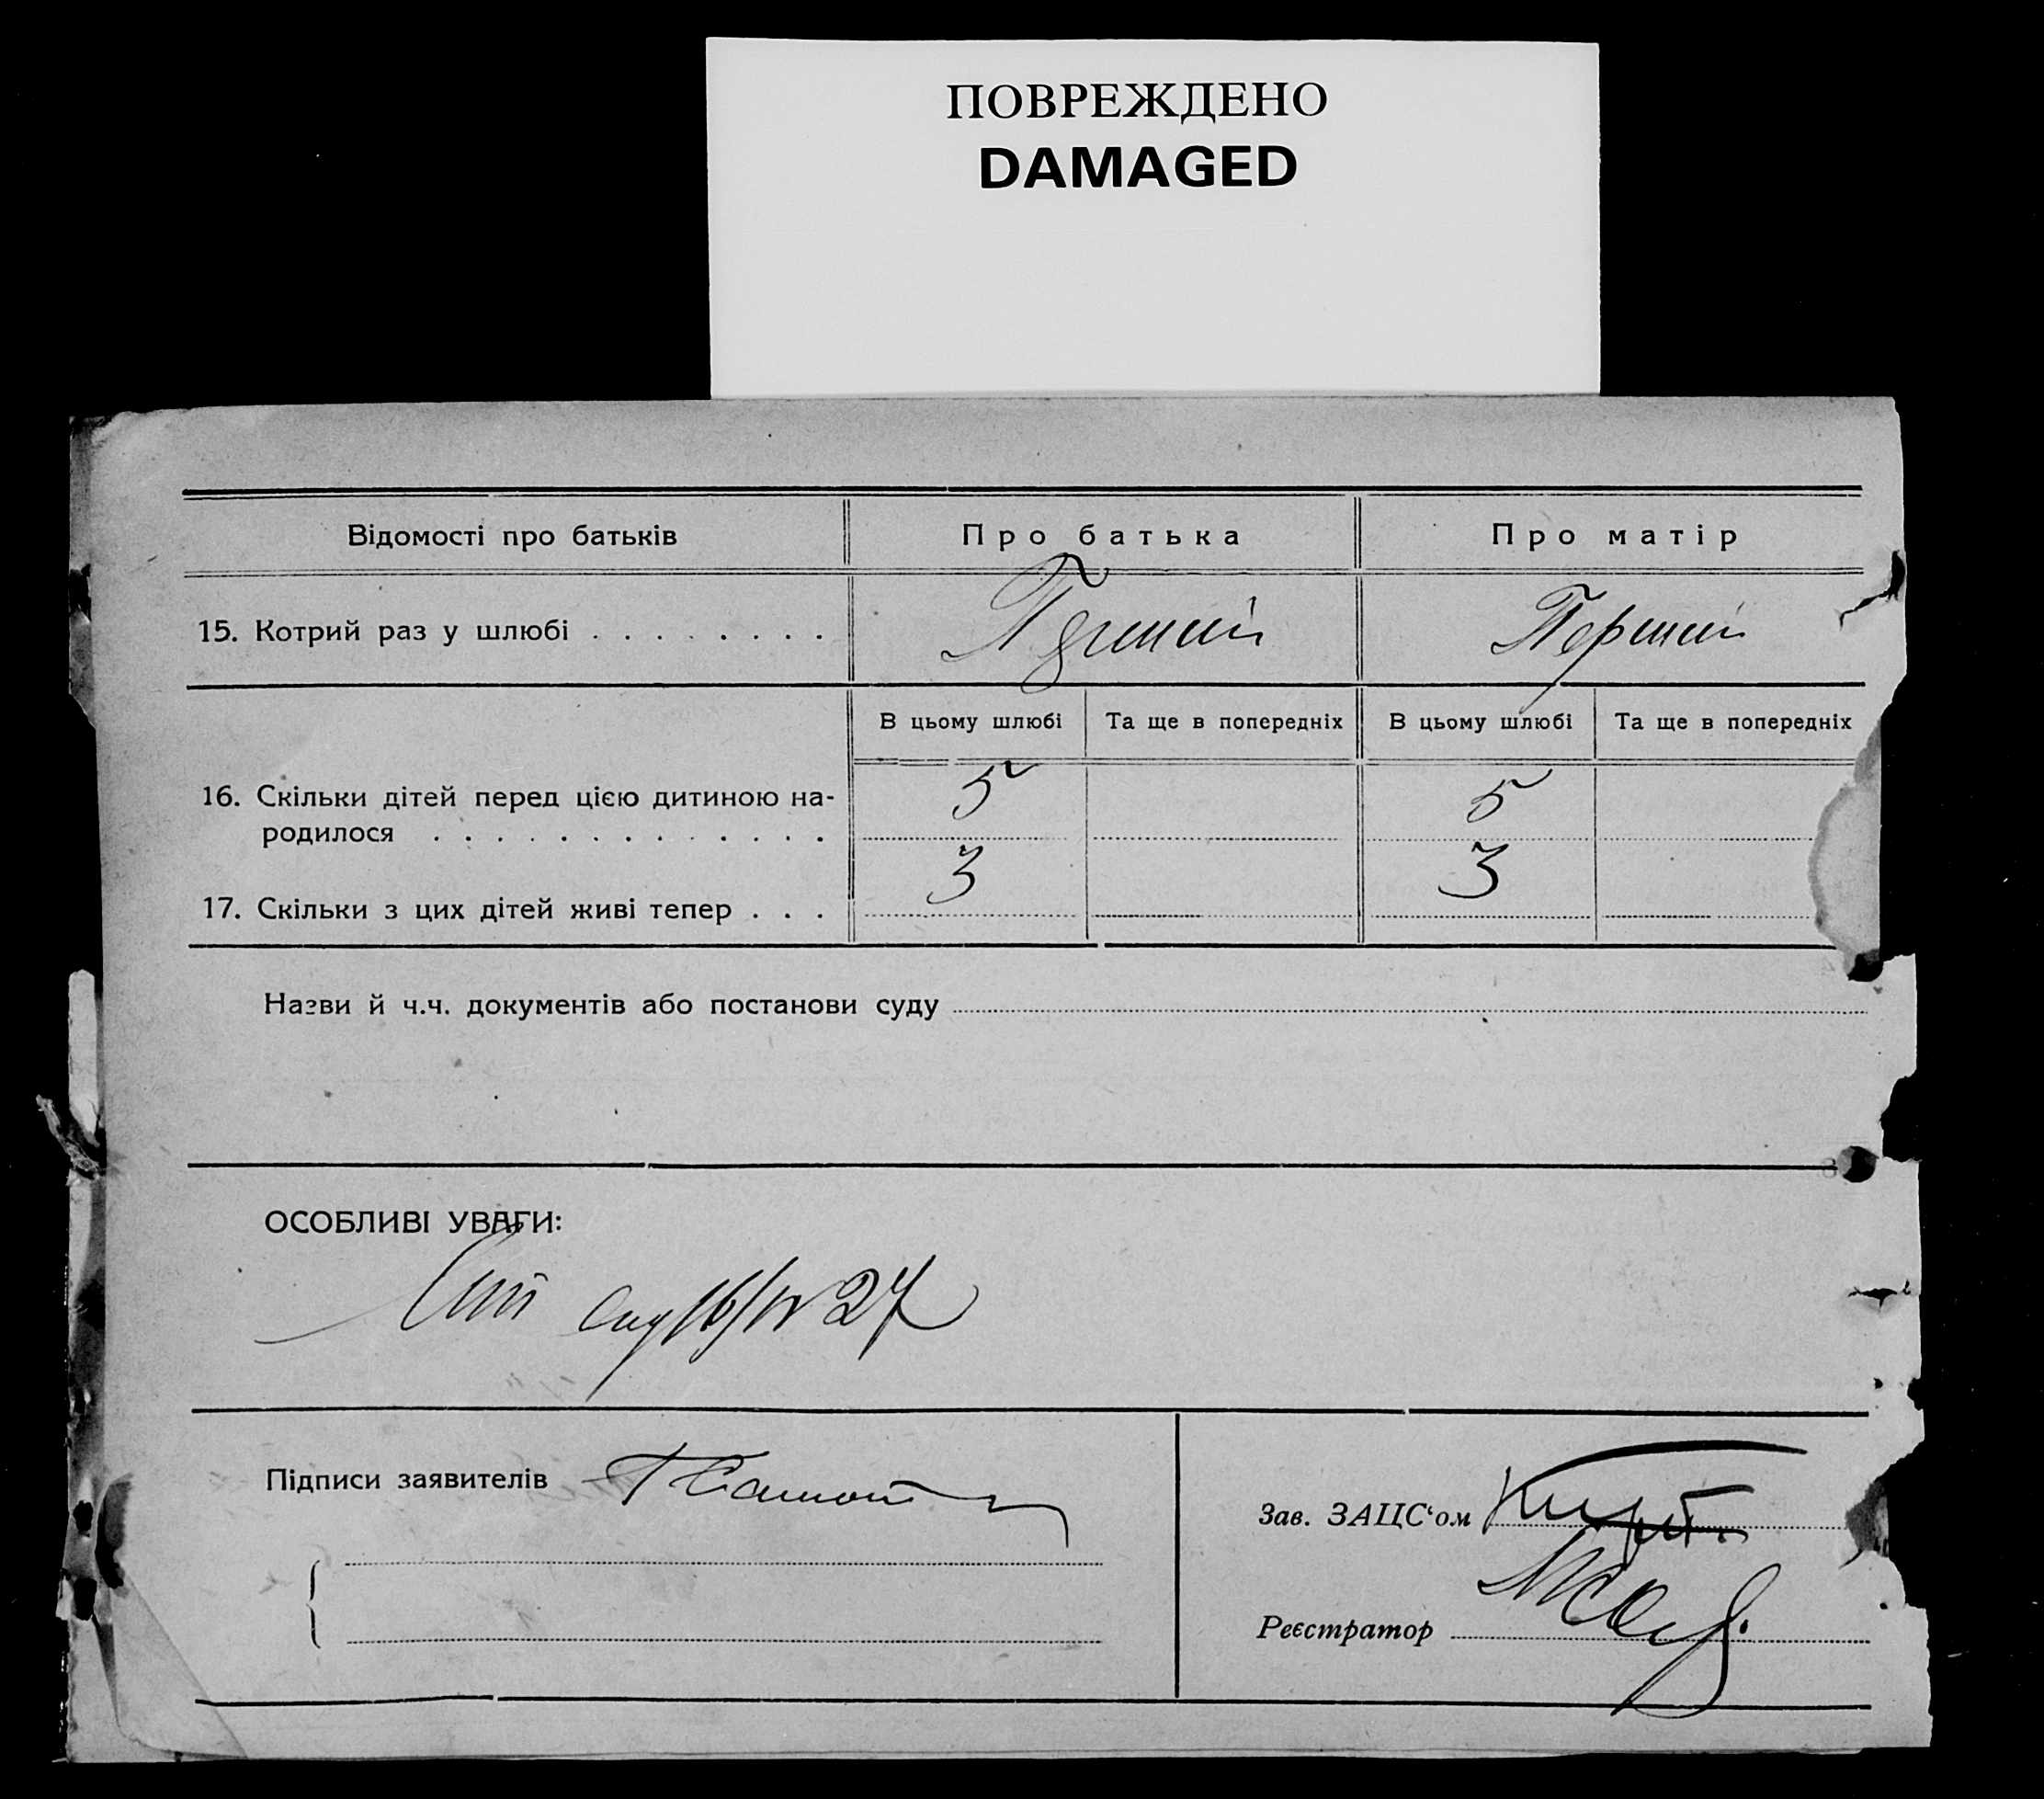 ПОВРЕЖДЕНО
DAMAGED
Відомості про батьків Про батька Про матір
15. Котрий раз у шлюбі . . . . . . . . Перший Перший
В цьому шлюбі Та ще в попередніх В цьому шлюбі Та ще в попередніх
16. Скільки дітей перед цією дитиною на-
родилося . . . . . . . . . . . . . 5 5
17. Скільки з цих дітей живі тепер . . . 3 3
Назви й ч.ч. документів або постанови суду
ОСОБЛИВІ УВАГИ:
27
Підписи заявителів
Зав. ЗАЦС'ом
Реєстратор